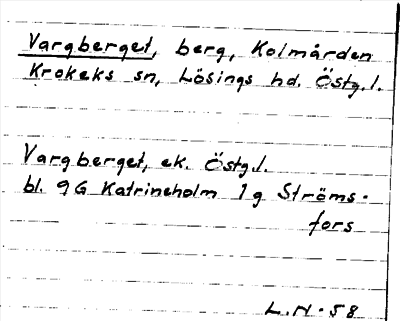 Vargberget, berg, Kolmården
Krokeks sn, Lösings hd. Östg.l.
Vargberget, ek. Östg.l.
bl. 9G Katrineholm 1g Ströms-
fors
L.N. 58